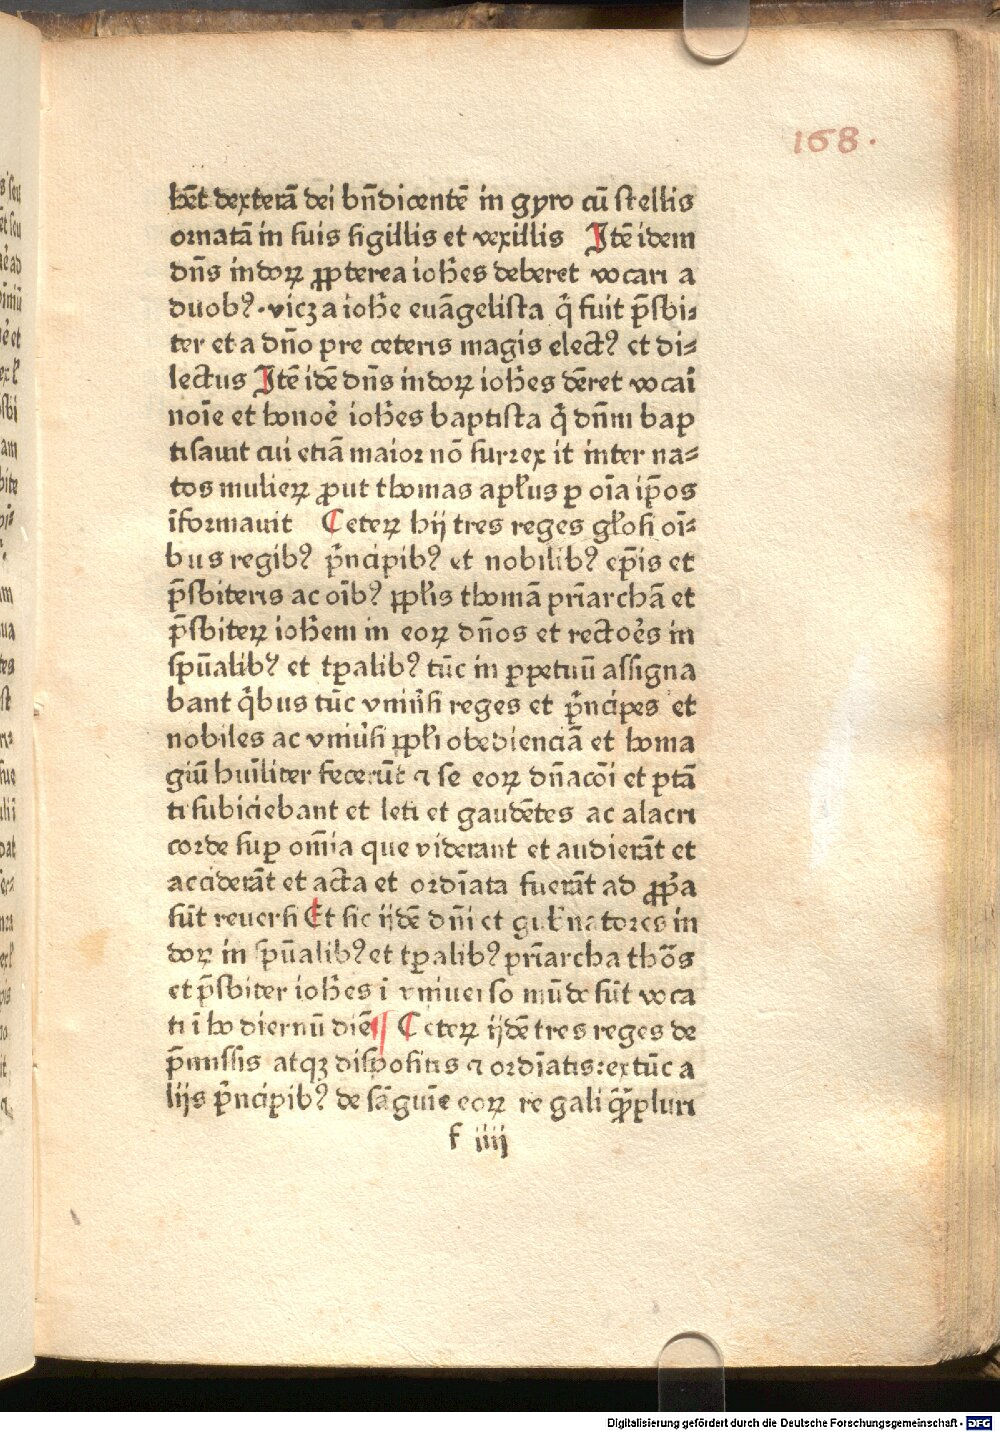 168.
bēt dexterā dei bn̄dicentē in gyro cū stellis
ornatā in suis sigillis et vexillis Itē idem
dn̄s indoꝝ ꝓpterea ioh̄es deberet vocari a
duobꝰ. vicꝫ a ioh̄e euāgelista q̄ fuit p̄sbi⸗
ter et a dn̄o pre ceteris magis electꝰ et di⸗
lectus Itē idē dn̄s indoꝝ ioh̄es dēret vocai
noīe et honoe᷒ ioh̄es baptista q̄ dn̄m bap
tisauit cui etiā maior nō surrex it inter na⸗
tos mulieꝝ ꝓut thomas apl̄us p oīa ip̄os
īformauit Ceteꝝ hij tres reges gl̄osi oī⸗
bus regibꝰ p̄ncipibꝰ et nobilibꝰ ep̄is et
p̄sbiteris ac oībꝰ ppl̄is thomā pr̄iarchā et
p̄sbiteꝝ ioh̄em in eoꝝ dn̄os et rectoe᷒s in
sp̄ualibꝰ et tꝑalibꝰ tūc in ꝑpetuū assigna
bant q̄bus tūc vniūsi reges et p̄ncipes et
nobiles ac vniūsi ppl̄i obedienciā et homa
giū hūiliter fecerūt ⁊ se eoꝝ dn̄acōi et ptā
ti subiciebant et leti et gaudētes ac alacri
corde suꝑ om̄ia que viderant et audierāt et
acciderāt et acta et ordīata fuerāt ad ꝓp̄a
sūt reuersi Et sic ijdē dn̄i et gub̄natores in
doꝝ in sp̄ualibꝰ et tꝑalibꝰ pr̄iarcha thōs
et p̄sbiter ioh̄es ī vniuerso mūdo sūt voca
ti ī ho diernū diē Ceteꝝ ijdē tres reges de
p̄missis atqꝫ dispositis ⁊ ordīatis: extūc a
lijs p̄ncipibꝰ de sāguīe eoꝝ re gali q̄ꝑpluri
f iiij
Digitalisierung gefördert durch die Deutsche Forschungsgemeinschaft - DFG